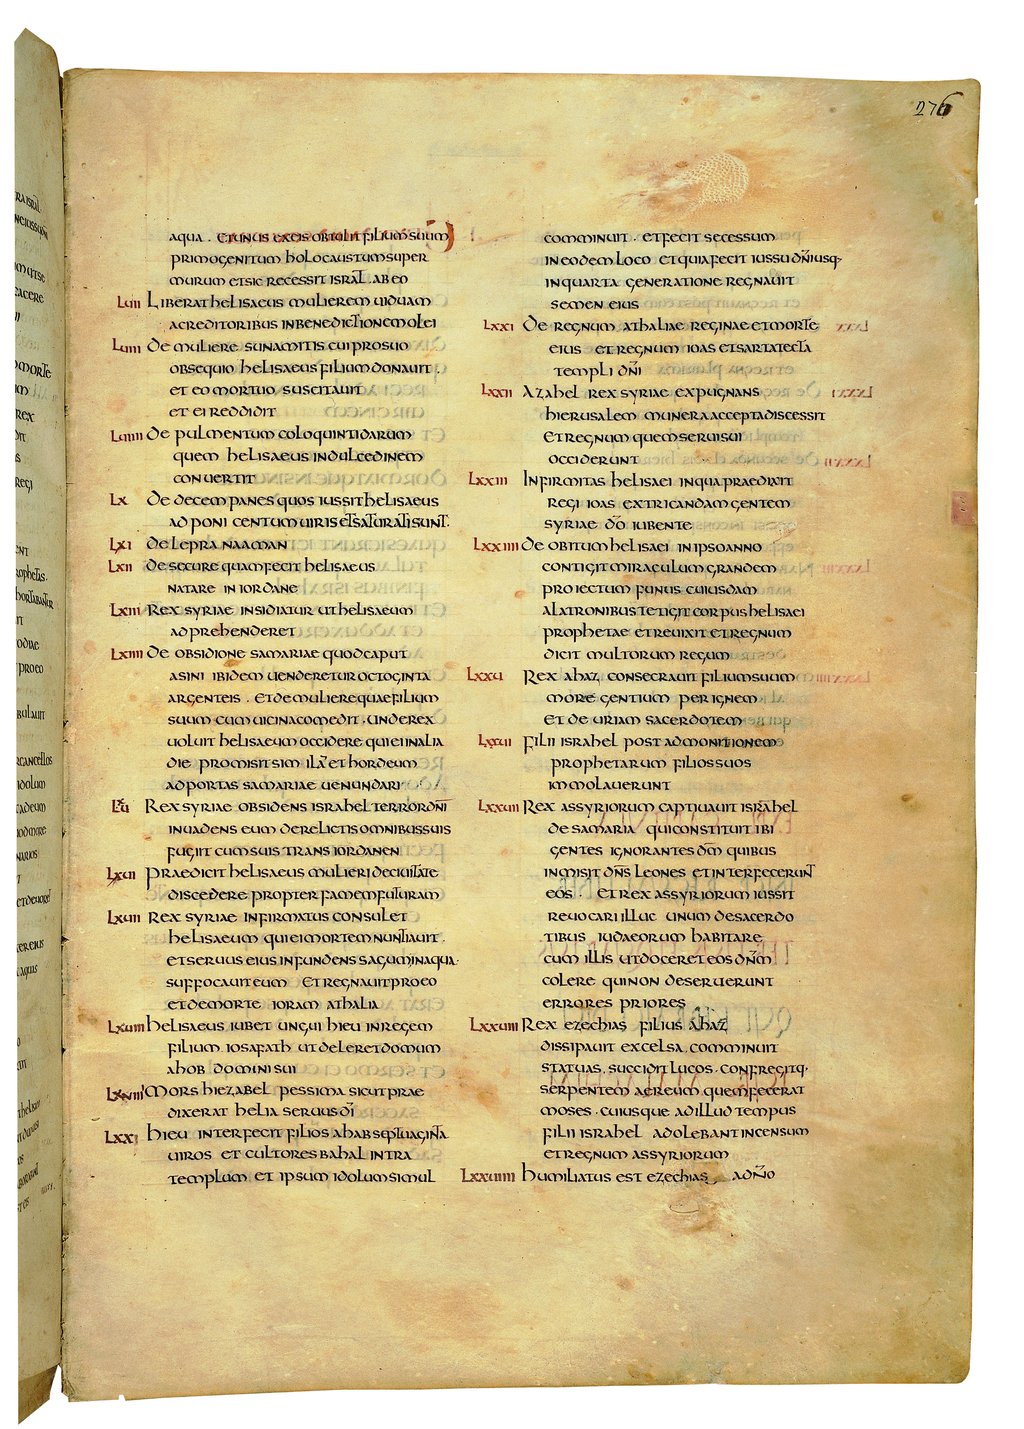 276
aqua . et unus ex eis obtulit filium suum
primogenitum holocaustum super
murum et sic recessit isrāl ab eo
LVII Liberat helisaeus mulierem viduam
a creditoribus in benedictionem olei
LVIII De muliere sunamitis cui pro suo
obsequio helisaeus filium donavit .
et eo mortuo suscitavit
et ei reddidit
LVIIII De pulmentum coloquintidarum
quem helisaeus in dulcedinem
convertit
LX De decem panes quos iussit helisaeus
adponi centum viris et saturati sunt .
LXI De lepra naaman
LXII De secure quam fecit helisaeus
natare in iordane
LXIII Rex syriae insidiatur ut helisaeum
adprehenderet
LXIIII De obsidione samariae quod caput
asini ibidem venderetur octoginta
argenteis . et de muliere quae filium
suum cum vicina comedit . unde rex
voluit helisaeum occidere qui ei in alia
die promisit simila et hordeum
ad portas samariae venundari
LXV Rex syriae obsidens israhel terror dn̄i
invadens eum derelictis omnibus suis
fugiit cum suis trans iordanen
LXVI Praedicit helisaeus mulieri de civitate
discedere propter famem futuram
LXVII Rex syriae infirmatus consulet
helisaeum qui ei mortem nuntiavit .
et servus eius infundens sagum in aqua .
suffocavit eum et regnavit pro eo
et de morte ioram athalia
LXVIII helisaeus iubet ungui hieu in regem
filium iosafath ut deleret domum
ahob domini sui
LXVIIII Mors hiezabel pessima sicut prae
dixerat helia servus dī
LXX hieu interfecit filios ahab septuaginta
viros et cultores bahal intra
templum et ipsum idolum simul
comminuit . et fecit secessum
in eodem loco et quia fecit iussu dn̄i usq·
in quarta generatione regnavit
semen eius
LXXI De regnum athaliae reginae et morte
eius et regnum ioas et sartatecta
templi dn̄i
LXXII Azahel rex syriae expugnans
hierusalem munera accepta discessit
et regnum quem servi sui
occiderunt
LXXIII Infirmitas helisaei in qua praedixit
regi ioas extricandam gentem
syriae dō iubente
LXXIIII De obitum helisaei in ipso anno
contigit miraculum grandem
proiectum funus cuiusdam
a latronibus tetigit corpus helisaei
prophetae et revixit et regnum
dicit multorum regum
LXXV Rex ahaz consecravit filium suum
more gentium per ignem
et de uriam sacerdotem
LXXVI Filii israhel post admonitionem
prophetarum filios suos
immolaverunt
LXXVII Rex assyriorum captivavit israhel
de samaria qui constituit ibi
gentes ignorantes dm̄ quibus
inmisit dn̄s leones et interfecerunt
eos . et rex assyriorum iussit
revocari illuc unum de sacerdo
tibus iudaeorum habitare
cum illis ut doceret eos dn̄m
colere qui non deseruerunt
errores priores
LXXVIII Rex ezechias filius ahaz
dissipavit excelsa . comminuit
statuas . succidit lucos . confregitq·
serpentem aereum quem fecerat
moses . cuiusque ad illud tempus
filii israhel adolebant incensum
et regnum assyriorum
LXXVIIII humiliatus est ezechias ad dn̄o